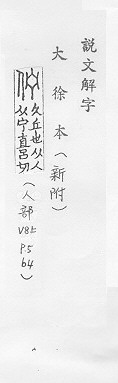 說文解字
大徐本(新附)
久立也从人
从宁直呂切
(人部
V8上
P.5
b4)